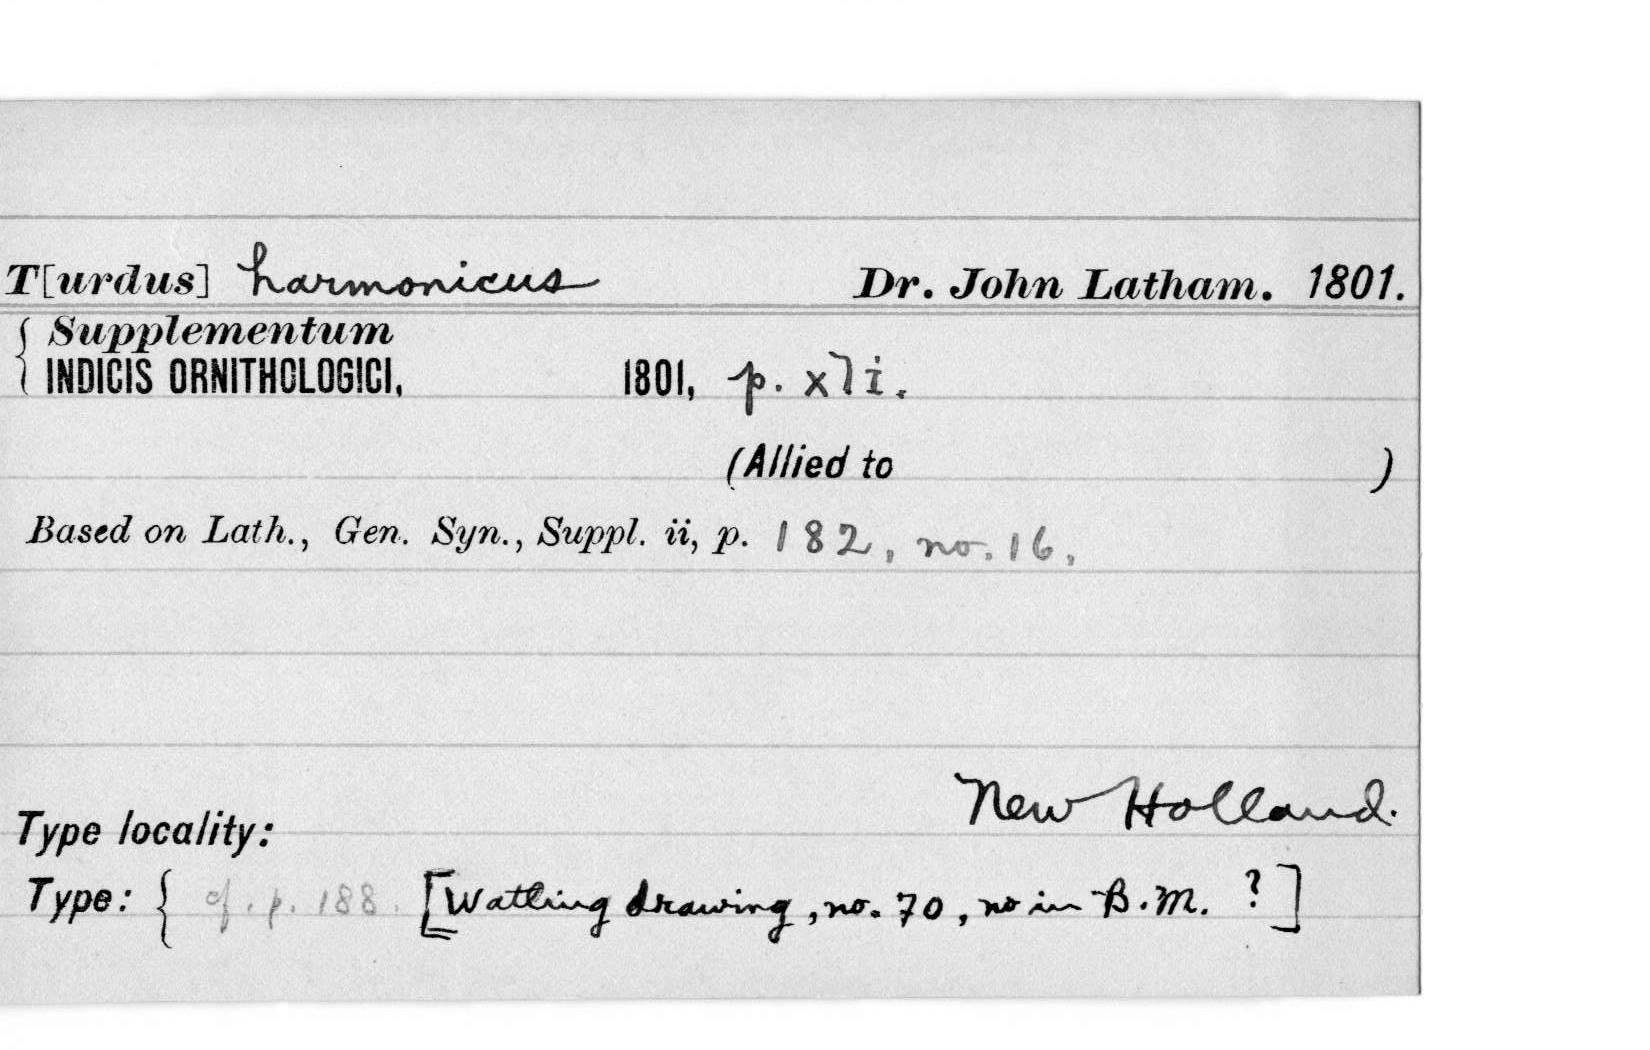 T[urdus] harmonicus Dr. John Latham. 1801.
Supplementum
INDICIS ORNITHOLOGICI, 1801, p. xli.
(Allied to )
Based on Lath., Gen. Syn., Suppl. ii, p. 182, no. 16.
New Holland.
Type locality:
Type: { cf. p. 188. [Watling drawing, no. 70, no in B.M. ?]